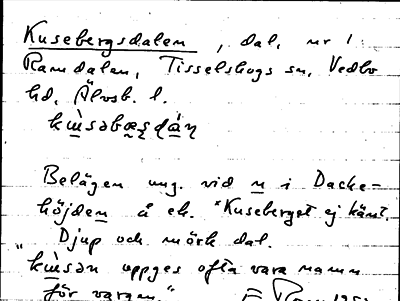 Kusebergsdalen, dal, nr 1
Ramdalen, Tisselskogs sn, Vedbo
hd, Älvsb. l.
Belägen ung. vid n i Dacke-
höjden å ek. *Kuseberget ej känt.
Djup och mörk dal.
"kɯ̀sən uppges ofta vara namn
för vargen."